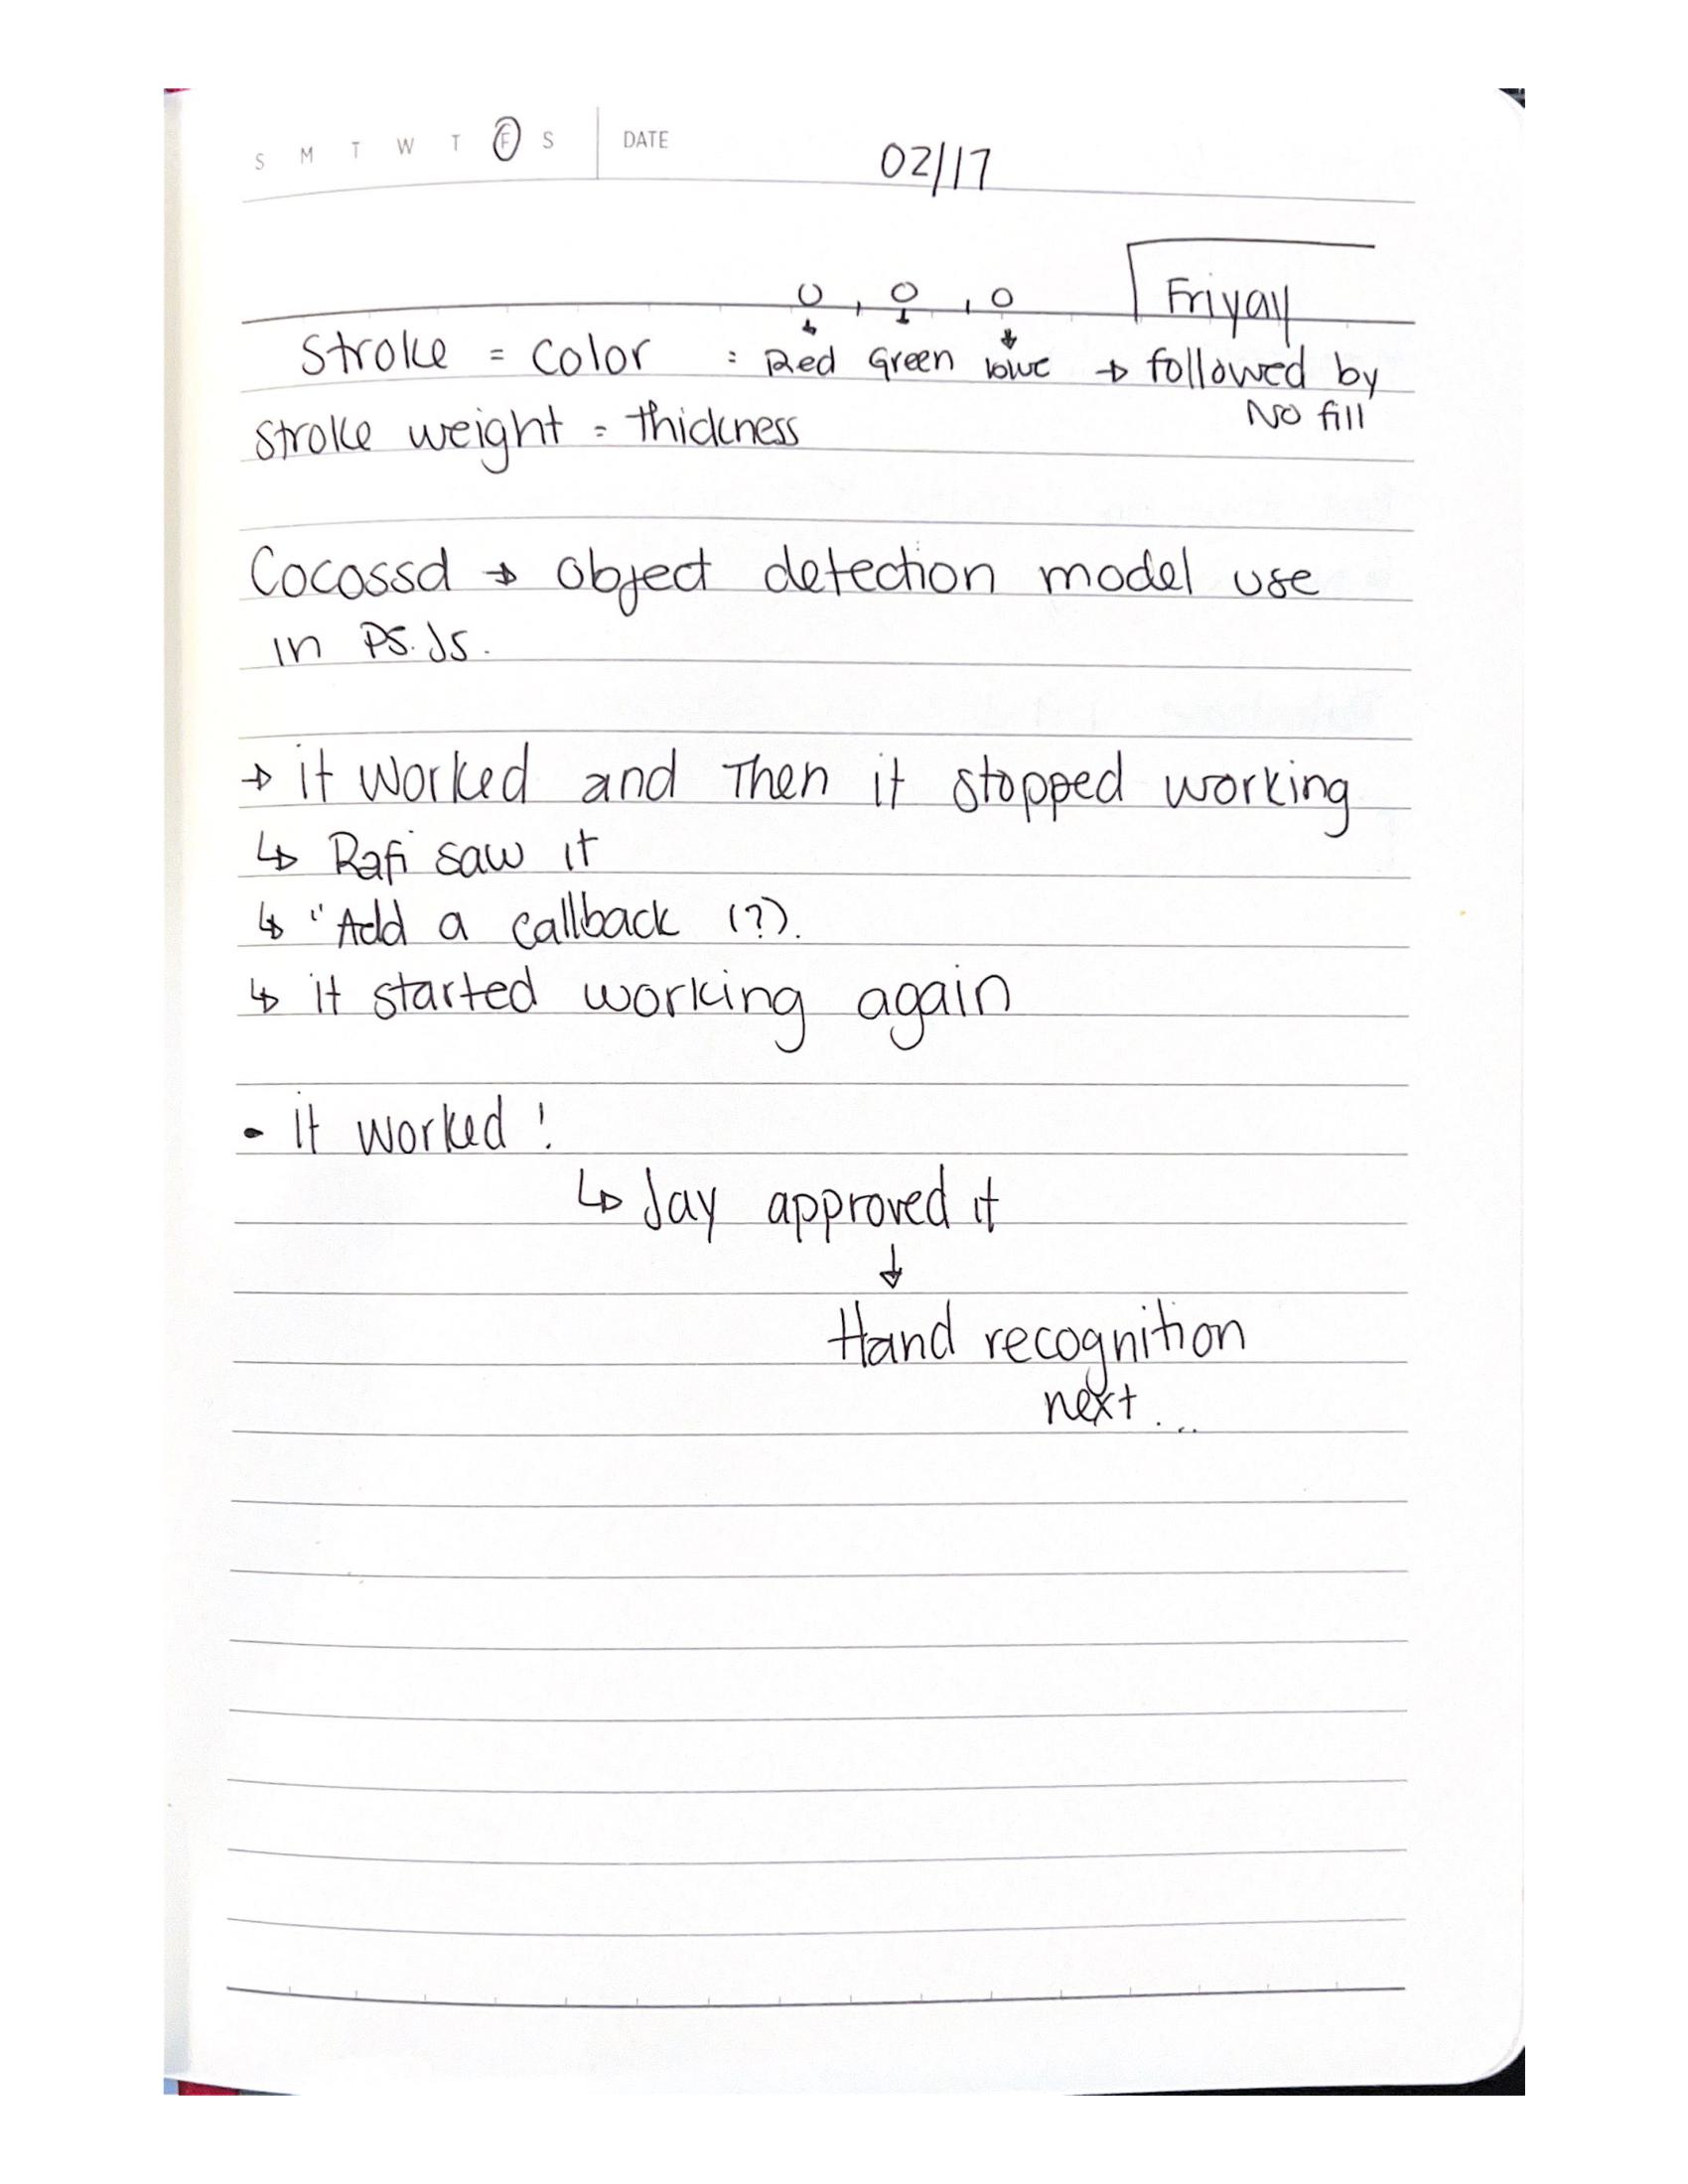 S M T W T F S DATE 02/17
0 , 0 , 0 Friyay
Stroke = Color : Red Green blue → followed by
No fill
Stroke weight = thickness
Cocossd → Object detection model use
in P5.Js.
→ it worked and Then it stopped working
↳ Rafi saw it
↳ "Add a callback (?).
↳ it started working again
• it worked !
↳ Jay approved it
↓
Hand recognition
next...